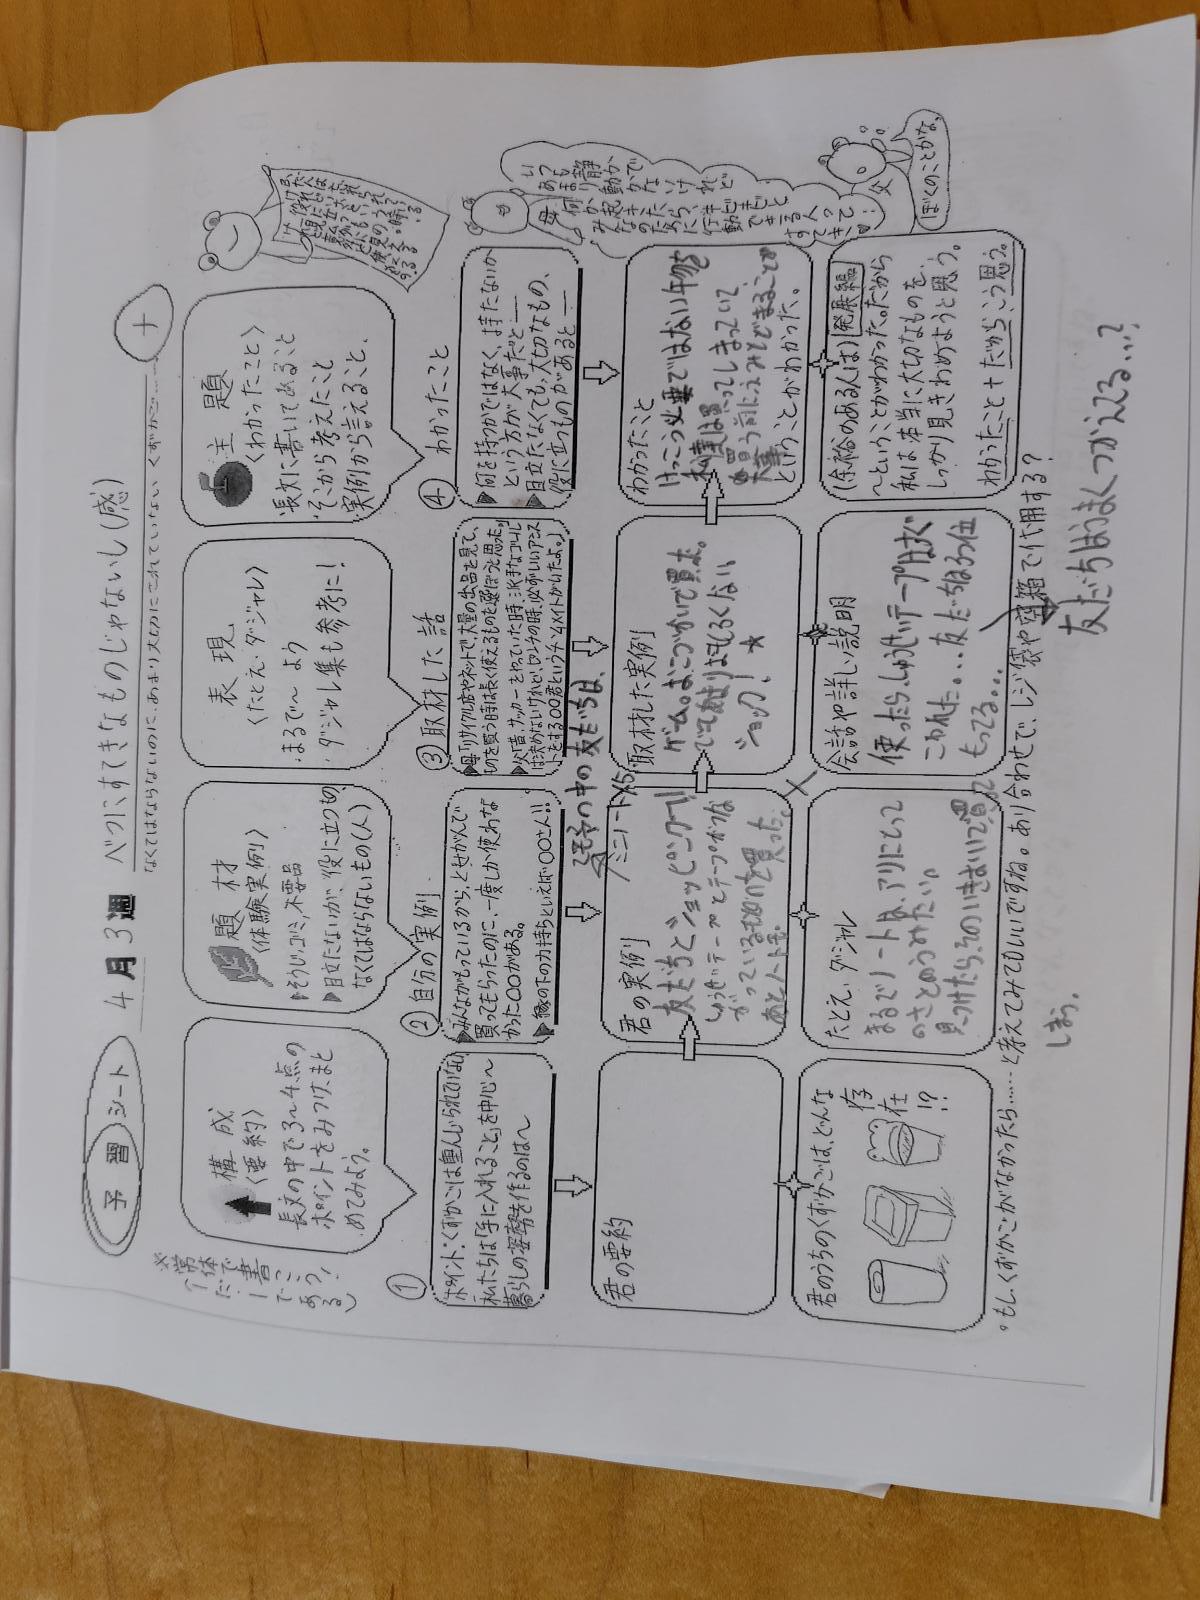 予習シート
4月3週
べつにすてきなものじゃないし(感)
なくてはならないのに、あまり大切にされていない くずかご……
※常体で書こう!
(〜だ・〜である)
構成
〈要約〉
長文の中で3〜4点の
ポイントをみつけ、まと
めてみよう。
題材
〈体験実例〉
▶そうじ、ゴミ、不要品
▶目立たないが、役に立つもの
なくてはならないもの(人)
表現
〈たとえ・ダジャレ〉
・まるで〜 よう
・ダジャレ集も参考に!
主題
〈わかったこと〉
・長文に書いてあること
・そこから考えたこと
・実例から言えること、
①
ポイント:くずかごは重んじられていない
私たちは「手に入れること」を中心〜
暮らしの姿勢を作るのは〜
② 自分の実例
▶みんながもっているから、とせがんで
買ってもらったのに、一度しか使わな
かった〇〇がある。
▶縁の下の力持ちといえば〇〇さん!!
③ 取材した話
▶母「リサイクル店やネットで、大量の出品を見て、
ものを買う時は長く使えるものを選ぼうと思った。
▶父「昔、サッカーをやっていた時、派手なゴール
は決めないけれど、ピンチの時、必ずいいアシス
トをする〇〇君というチームメイトがいたよ。」
④ わかったこと
▶何を持つかではなく、持たないか
という方が大事だと――
▶目立たなくても、大切なもの、
役に立つものがあると――
母
いつも静かで
あまり動かないけれど
何か起きたら、
みんなのために行動できる人って
すてき♥
父
ぼくのことかな。
君の要約
君の実例
ミニノート×5
友だちとショッピング!!
しゅうせいテープとテープがつな
がっているものを買った。
あとノートも。
その中の友だちは、
取材した実例
ゲーム。おこづかいで買った。
でもあまりおもしろくない。
ショック! ☆
わかったこと
けっこう必要ではない物を
私達は買ってしまっていて
買う前に
大事
ということがわかった。
君のうちのくずかごは、どんな
存在!?
たとえ、ダジャレ
まるでノートは、アリにとって
のさとうみたい。
見つけたら、そのいきおいで買って
しまう。
会話や詳しい説明
使ったら、しゅうせいテープはすぐ
こわれた…友だちは3つ位
もってる…
友だちはうまくつかえてる…?
(余裕のある人は) 発展編
〜ということがわかった。だから
私は本当に大切なものを、
しっかり見きわめようと思う。
わかったこと+だからこう思う。
。もし、くずかごがなかったら……と考えてみてもいいですね。あり合わせで、レジ袋や空箱で代用する?